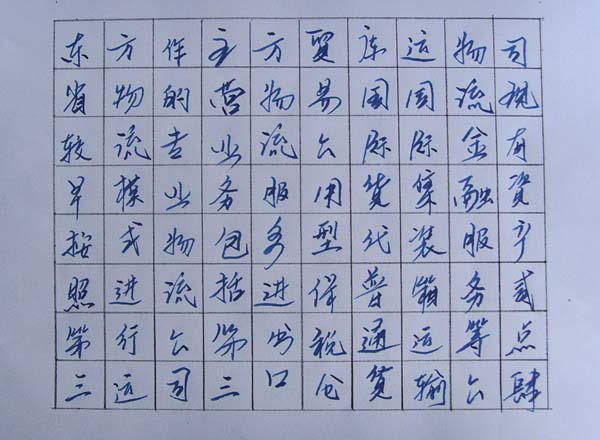 东省较早按照第三
方物流模式进行运
作的专业物流公司
主营业务包括第三
方物流服务进出口
贸易公用型保税仓
库国际货代普通货
运国际集装箱运输
物流金融服务等公
司现有资产贰点肆